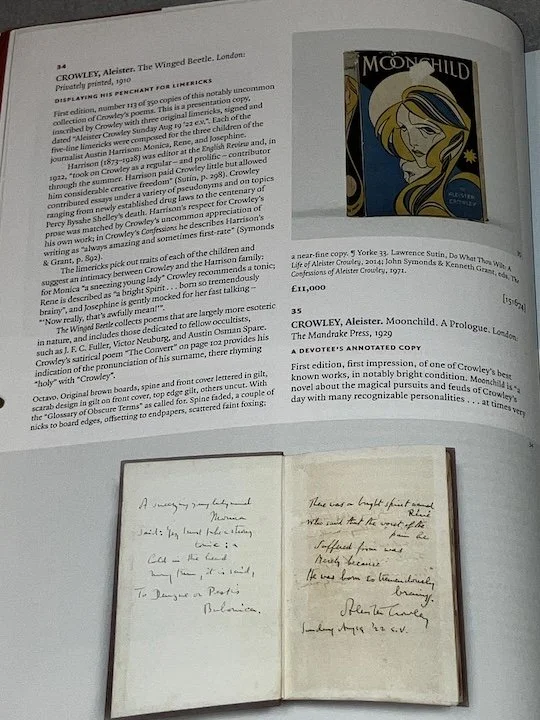 34
CROWLEY, Aleister. The Winged Beetle. London:
Privately printed, 1910
DISPLAYING HIS PENCHANT FOR LIMERICKS
First edition, number 113 of 350 copies of this notably uncommon
collection of Crowley's poems. This is a presentation copy,
inscribed by Crowley with three original limericks, signed and
dated "Aleister Crowley Sunday Aug 19 '22 e.v.". Each of the
five-line limericks were composed for the three children of the
journalist Austin Harrison: Monica, Rene, and Josephine.
Harrison (1873–1928) was editor at the English Review and, in
1922, "took on Crowley as a regular – and prolific – contributor
through the summer. Harrison paid Crowley little but allowed
him considerable creative freedom" (Sutin, p. 298). Crowley
contributed essays under a variety of pseudonyms and on topics
ranging from newly established drug laws to the centenary of
Percy Bysshe Shelley's death. Harrison's respect for Crowley's
prose was matched by Crowley's uncommon appreciation of
his own work; in Crowley's Confessions he describes Harrison's
writing as "always amazing and sometimes first-rate" (Symonds
& Grant, p. 892).
The limericks pick out traits of each of the children and
suggest an intimacy between Crowley and the Harrison family:
for Monica "a sneezing young lady" Crowley recommends a tonic;
Rene is described as "a bright Spirit . . . born so tremendously
brainy", and Josephine is gently mocked for her fast talking –
"'Now really, that's awfully mean!'".
The Winged Beetle collects poems that are largely more esoteric
in nature, and includes those dedicated to fellow occultists,
such as J. F. C. Fuller, Victor Neuburg, and Austin Osman Spare.
Crowley's satirical poem "The Convert" on page 102 provides his
indication of the pronunciation of his surname, there rhyming
"holy" with "Crowley".
Octavo. Original brown boards, spine and front cover lettered in gilt,
scarab design in gilt on front cover, top edge gilt, others uncut. With
the "Glossary of Obscure Terms" as called for. Spine faded, a couple of
nicks to board edges, offsetting to endpapers, scattered faint foxing;
MOONCHILD
ALEISTER
CROWLEY
35
a near-fine copy. ¶ Yorke 33. Lawrence Sutin, Do What Thou Wilt: A
Life of Aleister Crowley, 2014; John Symonds & Kenneth Grant, eds, The
Confessions of Aleister Crowley, 1971.
£11,000
[151674]
35
CROWLEY, Aleister. Moonchild. A Prologue. London:
The Mandrake Press, 1929
A DEVOTEE'S ANNOTATED COPY
First edition, first impression, of one of Crowley's best
known works, in notably bright condition. Moonchild is "a
novel about the magical pursuits and feuds of Crowley's
day with many recognizable personalities . . . at times very
34
A sneezing young lady named
Monica
Said: You must take a strong
tonic; a
Cold in the head
may turn, it is said,
To Dengue or Pestis
Bubonica.
There was a bright spirit named
Who said that the worst of the
pain he
Suffered from was
Merely because
He was born so tremendously
brainy.
Aleister Crowley
Sunday Aug 19 '22 e.v.